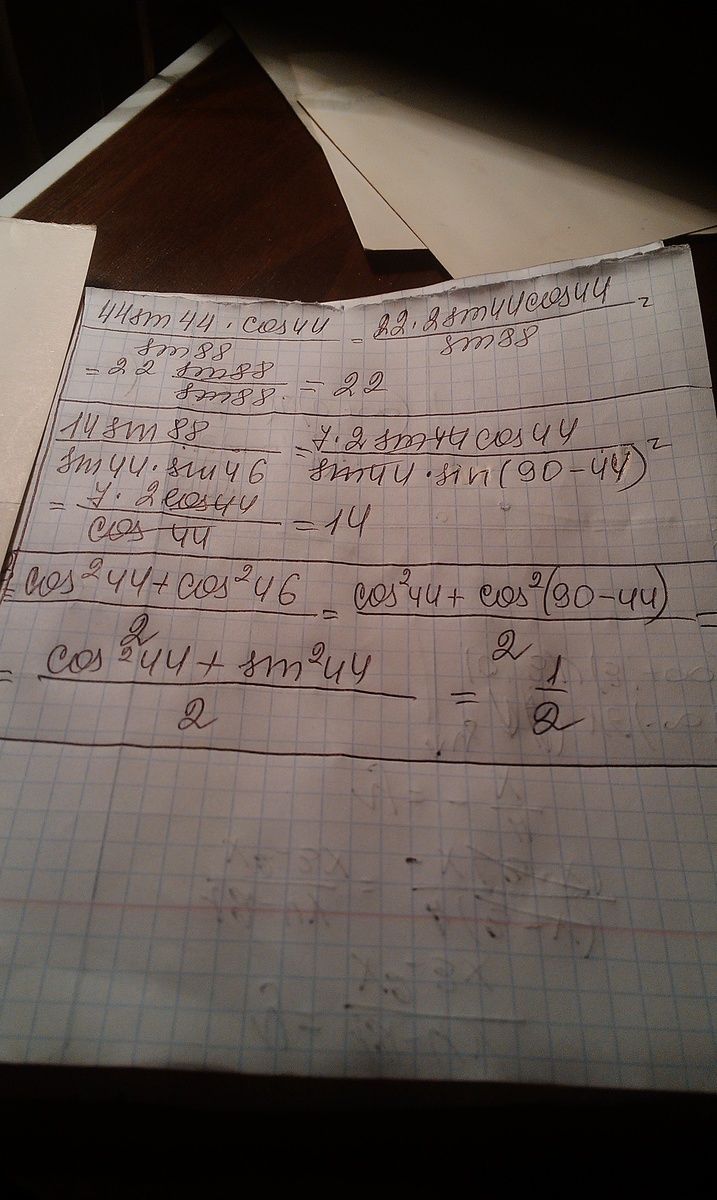 44sin44·cos44/sin88 = 22·2sin44cos44/sin88 =
= 22 sin88/sin88 = 22
14sin88/sin44·sin46 = 7·2sin44cos44/sin44·sin(90-44) =
= 7·2cos44/cos44 = 14
cos²44+cos²46/2 = cos²44+cos²(90-44)/2 =
= cos²44+sin²44/2 = 1/2